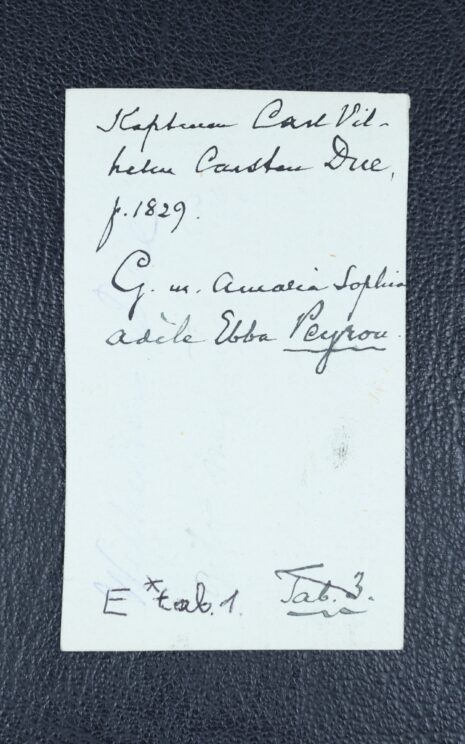 Kaptenen Carl Vil-
helm Carsten Due,
f. 1829.
G. m. Amalia Sophia
Adèle Ebba Peyron.
E *tab. 1. Tab. 3.